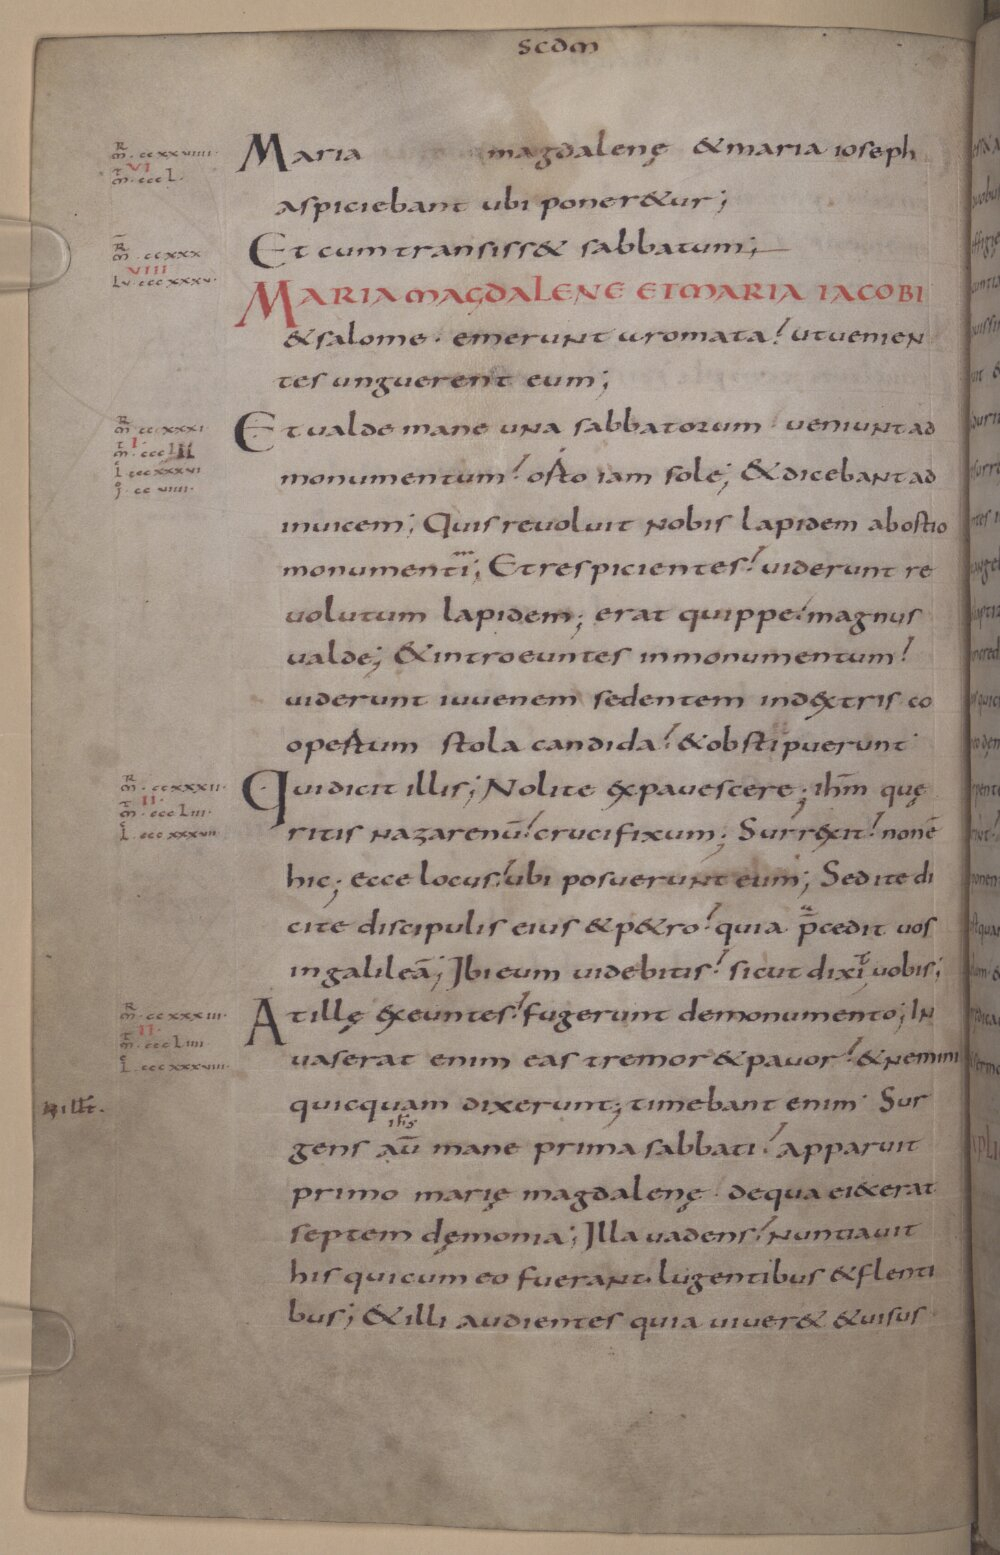 scdm
Maria magdalenę & maria ioseph
aspiciebant ubi poner&ur;
Et cum transiss& sabbatum;
MARIA MAGDALENE ET MARIA IACOBI
& salome · emerunt aromata! ut venien
tes unguerent eum;
R m · ccxxxi
Et valde mane una sabbatorum · veniunt ad
monumentum! orto iam sole; & dicebant ad
invicem; Quis revoluit nobis lapidem ab ostio
monumenti; Et respicientes! viderunt re
volutum lapidem; erat quippe! magnus
valde; & introeuntes in monumentum!
viderunt iuvenem sedentem in dextris co
opertum stola candida! & obstipuerunt·
Qui dicit illis; Nolite expavescere; ihm̄ quę
ritis nazarenū! crucifixum; Surrexit! non ē
hic; ecce locus! ubi posuerunt eum; Sed ite di
cite discipulis eius & p&ro! quia p̄cedit vos
in galileā; Ibi eum videbitis! sicut dixit vobis;
At illę exeuntes! fugerunt de monumento; In
vaserat enim eas tremor & pavor! & nemini
quicquam dixerunt; timebant enim· Sur
ihs
gens aū mane prima sabbati! apparuit
primo marię magdalenę · de qua eiecerat
septem dęmonia; Illa vadens! nuntiavit
his qui cum eo fuerant · lugentibus & flenti
bus; & illi audientes quia viver& & visus